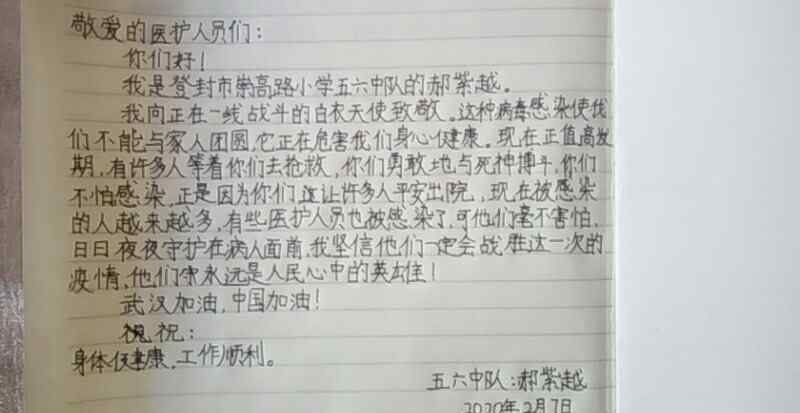 敬爱的医护人员们：
你们好！
我是登封市崇高路小学五六中队的郝紫越。
我向正在一线战斗的白衣天使致敬。这种病毒感染使我
们不能与家人团圆，它正在危害我们身心健康。现在正值高发
期，有许多人等着你们去抢救，你们勇敢地与死神搏斗，你们
不怕感染，正是因为你们这让许多人平安出院，现在被感染
的人越来越多，有些医护人员也被感染了，可他们毫不害怕，
日日夜夜守护在病人面前，我坚信他们一定会战胜这一次的
疫情，他们永远是人民心中的英雄！
武汉加油，中国加油！
祝：
身体健康，工作顺利。
五六中队：郝紫越
2020年2月7日